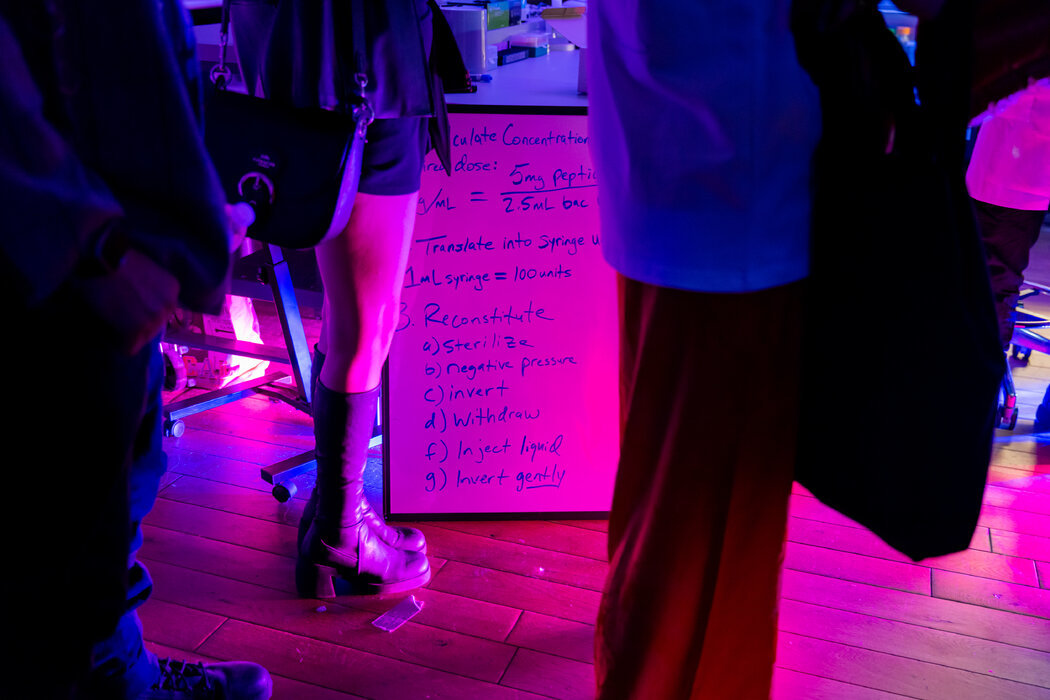 culate Concentration
dose:
5mg peptic
g/mL =
2.5mL bac
Translate into Syringe u
1mL syringe = 100units
3. Reconstitute
a) Sterilize
b) negative pressure
c) invert
d) Withdraw
f) Inject liquid
g) Invert gently